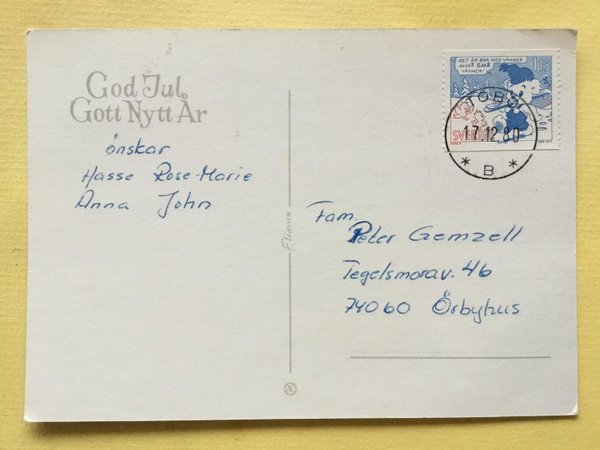 God Jul
Gott Nytt År
önskar
Hasse Rose-Marie
Anna John
DET ÄR BRA MED VÄNNER
OCKSÅ SMÅ
VÄNNER!
115
SVERIGE
17.12.80
* B *
Fam.
Peter Gemzell
Tegelsmorav. 46
74060 Örbyhus
Æ